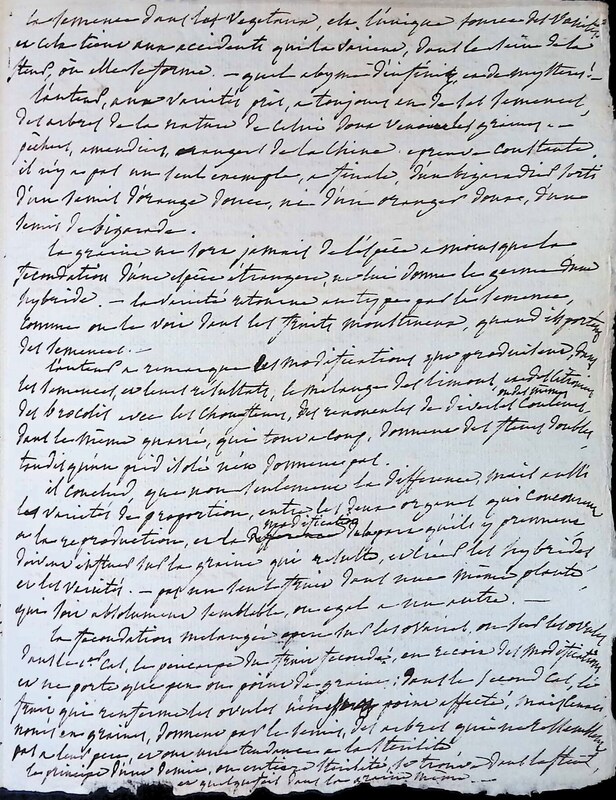 la semence dans les vegetaux, est l'unique source des Varietés
et cela tient aux accidents qui la varient, dans le sein de la
fleur, où elle se forme. — quel abyme d'infinité, et de mysteres! —
l'auteur, aux varietés près, a toujours eu de ses semences,
des arbres de la nature de celui dont venoient les graines. —
pêchers, amandiers, oranges de la Chine. epreuve constante
il n'y a pas un seul exemple, a finale, d'un bigaradier sorti
d'un semis d'orange douce, ni d'un oranger doux, d'un
semis de bigarade.
la graine ne sort jamais de l'espèce a moins que la
fecondation d'une espèce etrangere, ne lui donne le germe d'une
hybride. — la varieté retourne au type par la semence,
comme on le voit dans les fruits monstrueux, quand ils portent
des semences. —
l'auteur a remarqué les modifications que produisent, dans
les semences, et leurs resultats, le melange des limons, et des citrons
des brocolis avec les choufleurs, des renoncules de diverses couleurs
ou des mêmes
dans le même quarré, que tout a coup, donnent des fleurs doubles,
tandis qu'un pied isolé n'en donnent pas.
il conclud, que non seulement la difference, mais aussi
les varietés de proportion, entre les deux organes qui concourent
a la reproduction, et la modification de la part qu'ils y prennent
doivent influer sur la graine qui resulte, et creer les hybrides
et les varietés. — pas un seul fruit dans une même plante,
que soit absolument semblable, ou egal a un autre. —
la fecondation melangée opere sur les ovaires, ou sur les ovules
dans le 1er cas, le principe du fruit fecondé, en recoit des modifications
et ne porte que peu ou point de graine; dans le second cas, le
fruit qui renferme les ovules n'en point affecté, mais
en graines, donnent par le semis, des arbres qui ne ressemblent
pas a leur pere, et ont une tendance a la sterilité
le principe d'une demie, ou entiere sterilité, se trouve dans la fleur,
et quelquefois dans la graine même. —